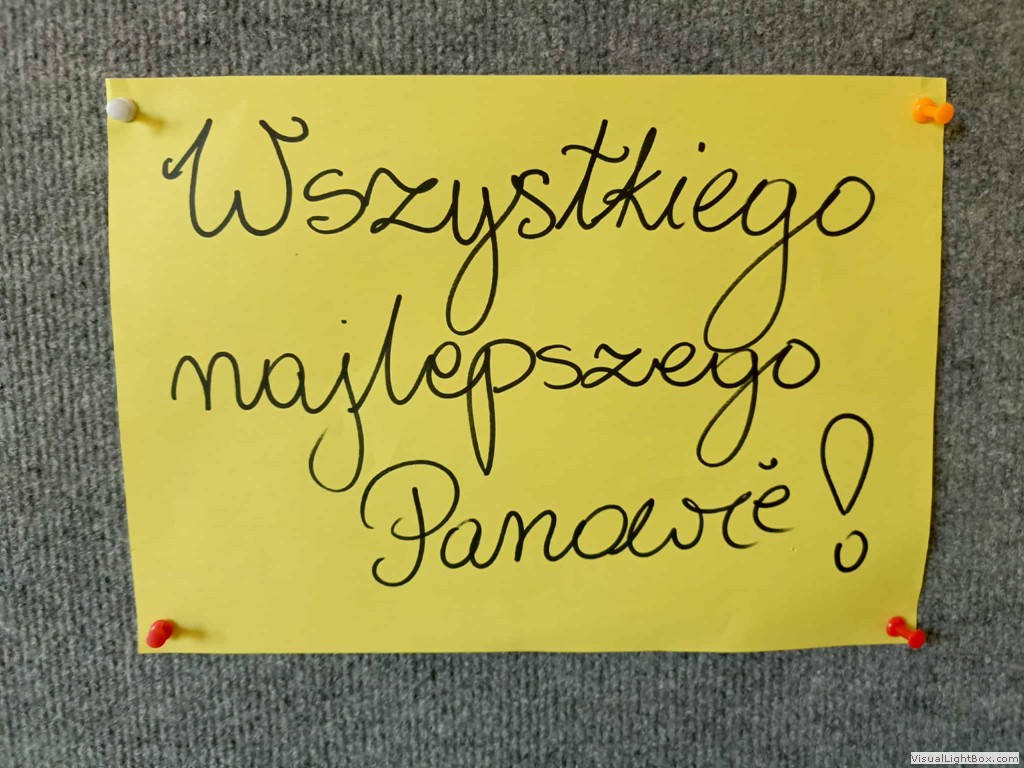 Wszystkiego
najlepszego
Panowie!
VisualLightBox.com